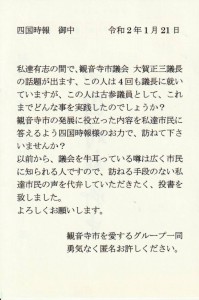 四国時報 御中 令和2年1月21日
私達有志の間で、観音寺市議会 大賀正三議長
の話題が出ます、この人は4回も議長に就い
ていますが、この人は古参議員として、これ
までどんな事を実践したのでしょうか？
観音寺市の発展に役立った内容を私達市民に
答えるよう四国時報様のお力で、訪ねて下さ
いませんか？
以前から、議会を牛耳っている噂は広く市民
に知られる人ですので、訪ねる手段のない私
達市民の声を代弁していただきたく、投書を
致しました。
よろしくお願いします。
観音寺市を愛するグループ一同
勇気なく匿名お許しください。